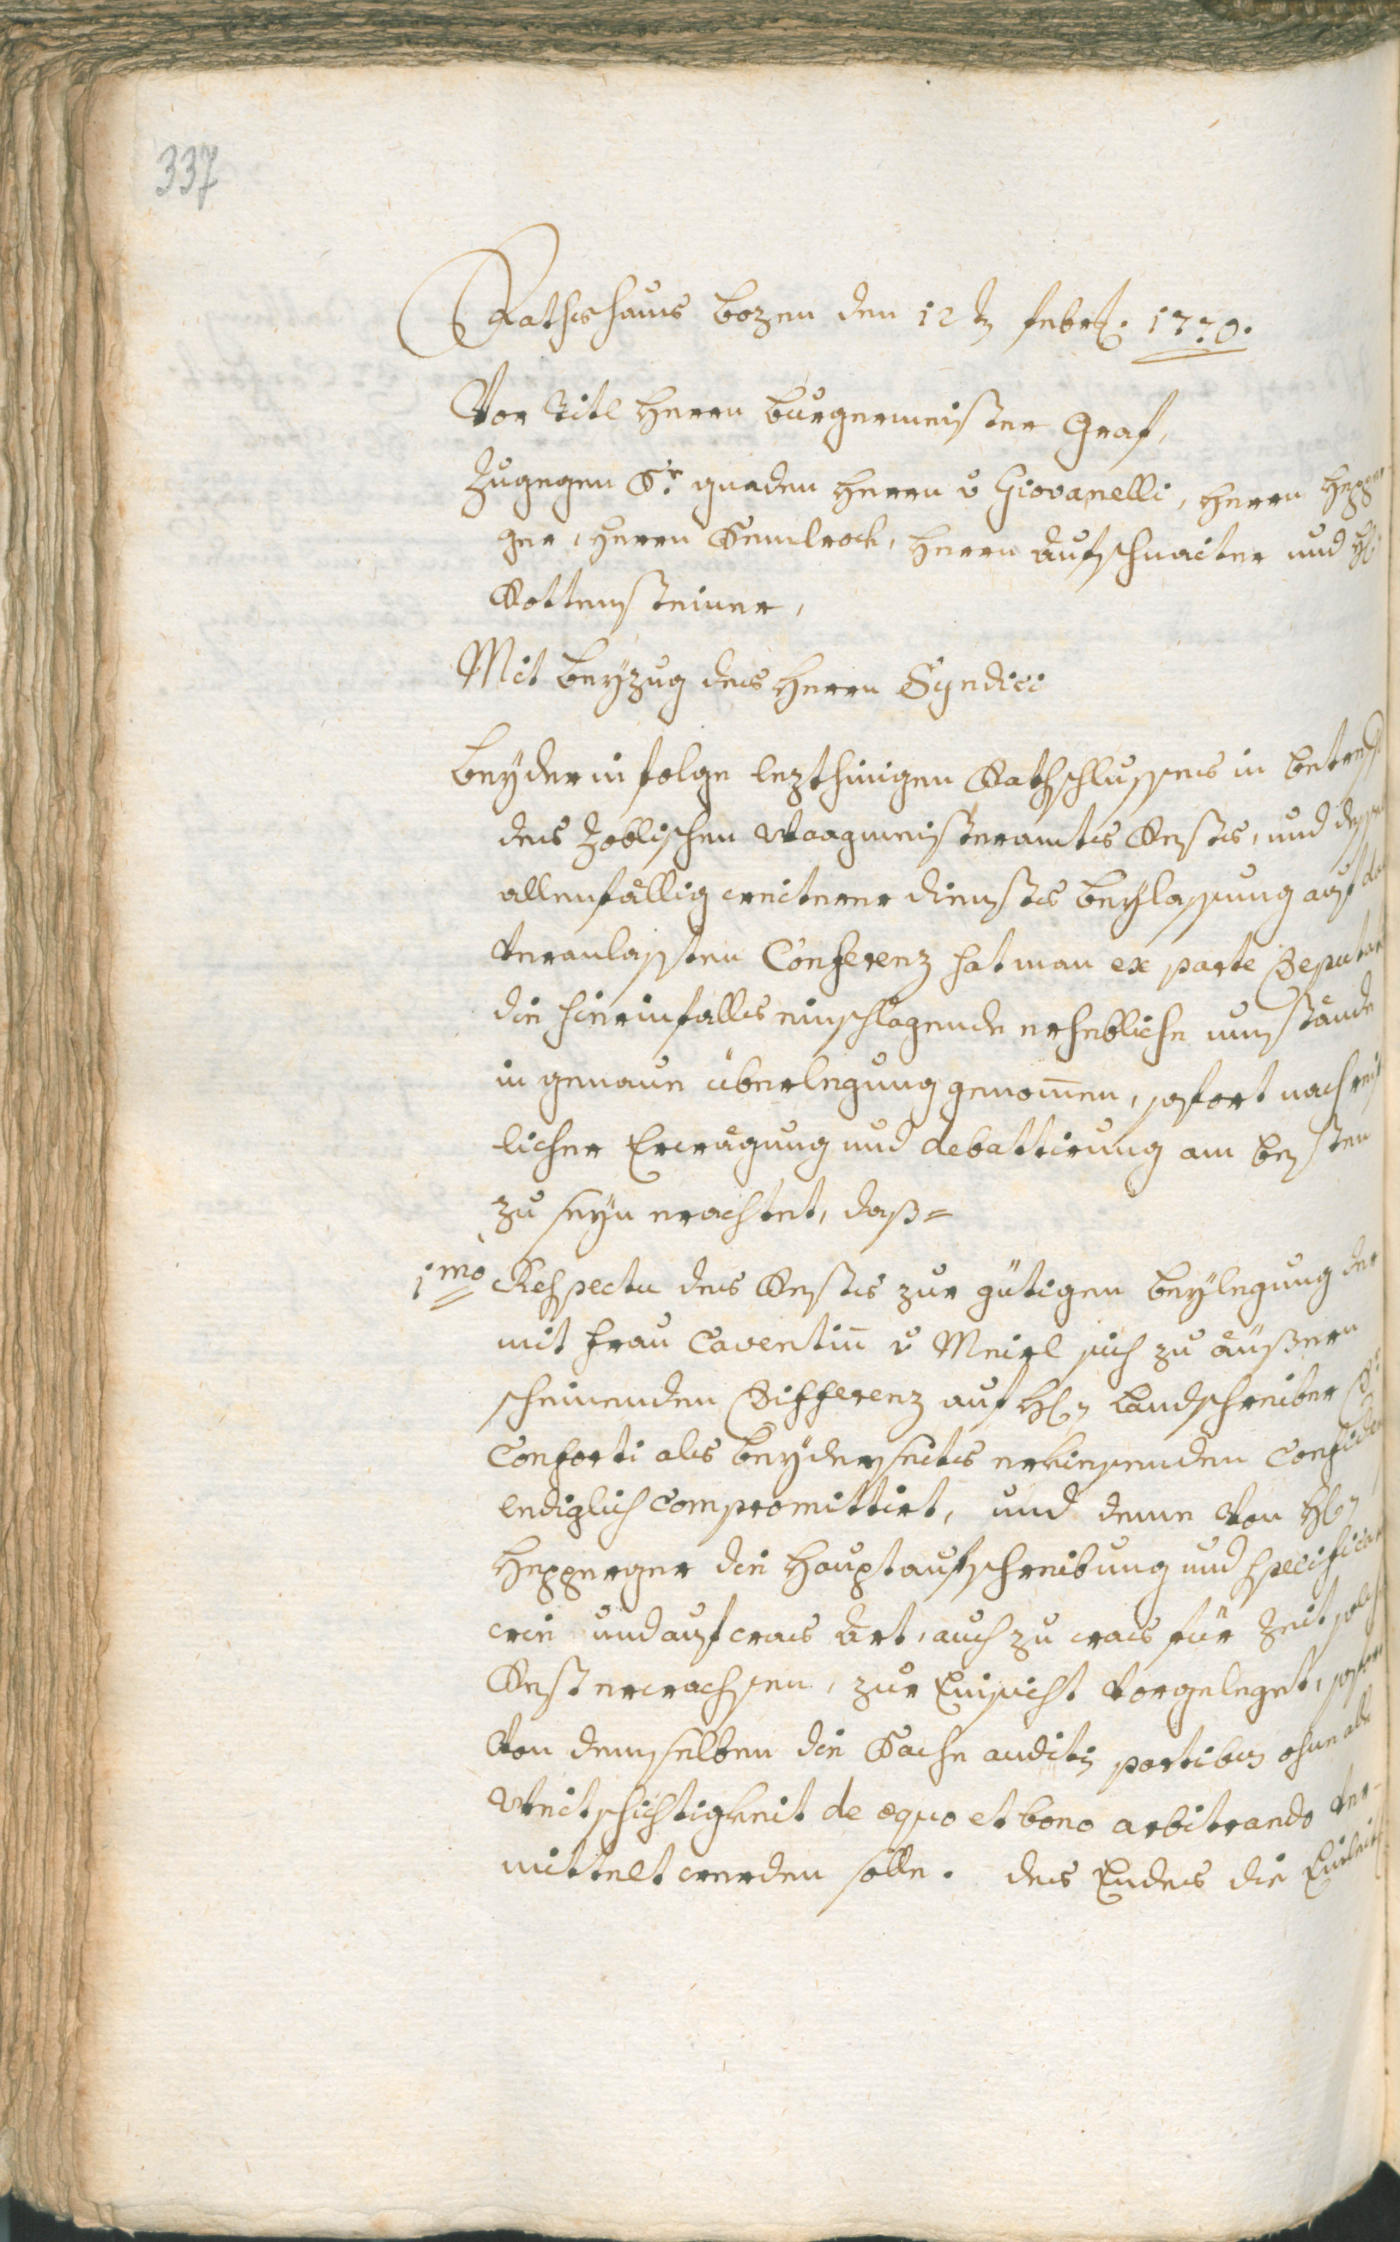 337
Rathshaus Bozen den 12t̲n̲ febr: 1770.
Vor Titl Herrn Burgermeister Graf,
Zugegen Sr. gnaden Herrn v Giovanelli, Herrn Hepper
ger, Herrn Kemlrock, Herrn Aufschnaiter und H:
Rottensteiner,
Mit beyzug des Herrn Syndici
Bey der in folge lezthinigen Rathschlusses in betreff
des Zoblischen Waagmeisteramts Rests, und dessen
allenfällig weiterer diensts beylassung auf der
Veranlassten Conferenz hat man ex parte Deputat
die hierinfalls einschlagende erhebliche umstände
in genaue überlegung genommen, sofort nach reif
licher Erwägung und debattirung am besten
zu seyn erachtet, daß=
1mo Respectu des Rests zur gütigen beylegung der
mit Frau Caventin v Meirl sich zu äußern
scheinenden Differenz auf H: Landschreiber v
Conforti als beyderseits erkiesenden Confiden
lediglich Compromittirt, und deme Von H:
Hepperger die Hauptaufschreibung und specification
wie und auf was Art, auch zu was für Zeit solch
Rest erwachsen, zur Einsicht Vorgeleget, sofort
Von demselben die Sache auditis partibus ohne alle
Weitschichtigkeit de æquo et bono arbitrando ver-
mittelt werden solle. des Endes die Einleit